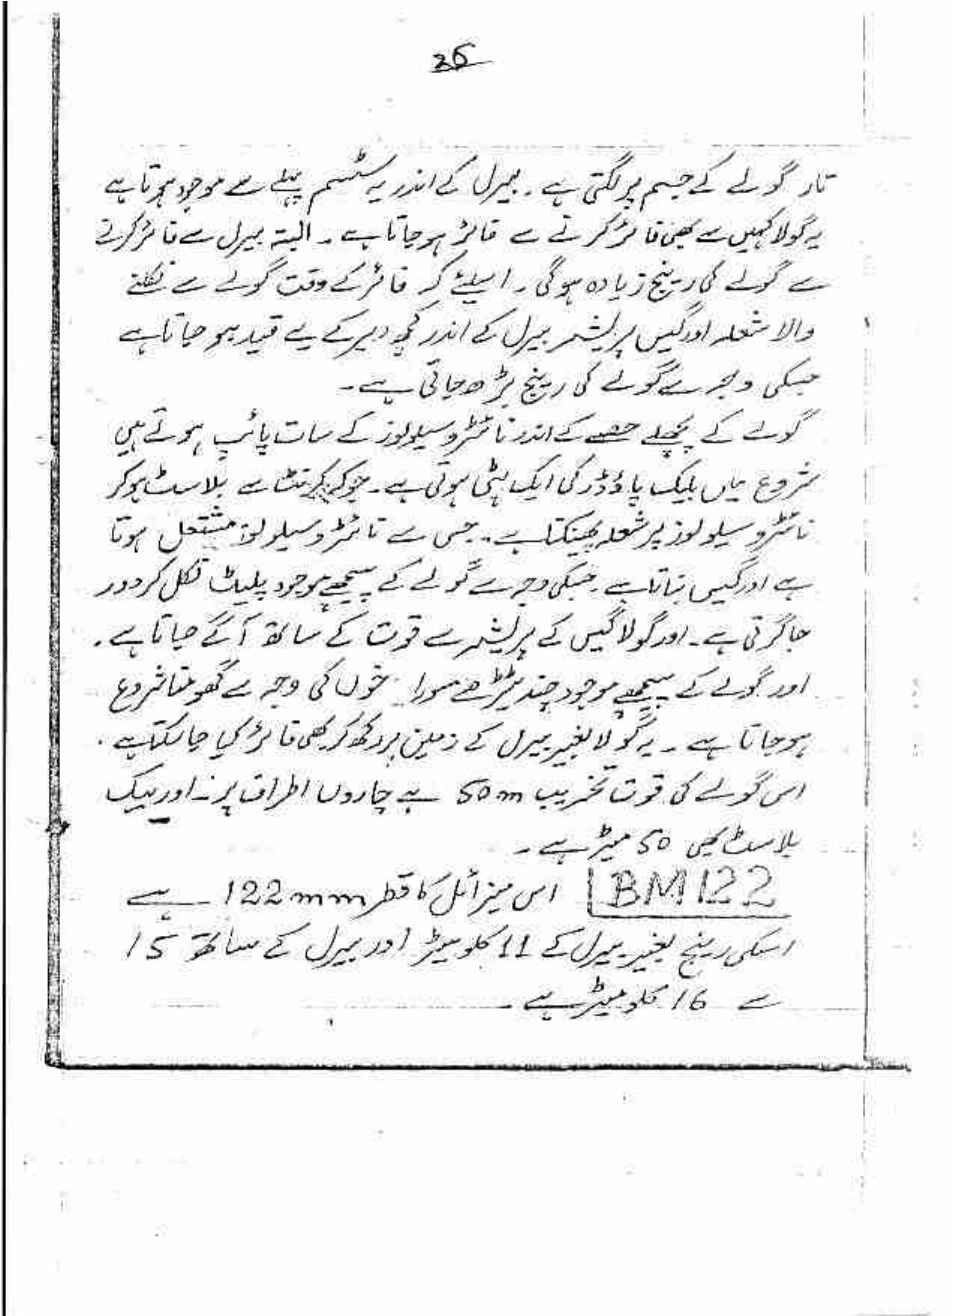 26
تار گولے کے جسم پر لگتی ہے۔ بیرل کے اندر یہ سسٹم پہلے سے موجود ہوتا ہے
یہ گولا کہیں سے بھی فائر کرنے سے فائر ہو جاتا ہے۔ البتہ بیرل سے فائر کرنے
سے گولے کی رینج زیادہ ہوگی۔ اسلیئے کہ فائر کے وقت گولے سے نکلنے
والا شعلہ اور گیس پریشر بیرل کے اندر کچھ دیر کے لیے قید ہو جاتا ہے
جسکی وجہ سے گولے کی رینج بڑھ جاتی ہے۔
گولے کے پچھلے حصے کے اندر نائٹرو سیلولوز کے سات پائپ ہوتے ہیں
شروع میں بلیک پاؤڈر کی ایک ہٹی ہوتی ہے۔ جو کہ کرنٹ سے بلاسٹ ہوکر
نائٹرو سیلولوز پر شعلہ پھینکتا ہے۔ جس سے نائٹرو سیلولوز مشتعل ہوتا
ہے اور گیس بناتا ہے۔ جسکی وجہ سے گولے کے پیچھے موجود پلیٹ نکل کر دور
جا گرتی ہے۔ اور گولا گیس کے پریشر سے قوت کے ساتھ آگے جاتا ہے۔
اور گولے کے پیچھے موجود چند ٹیڑھے سوراخوں کی وجہ سے گھومنا شروع
ہو جاتا ہے۔ یہ گولا بغیر بیرل کے زمین پر رکھ کر بھی فائر کیا جا سکتا ہے۔
اس گولے کی قوت تخریب 50m ہے چاروں اطراف پر۔ اور بیک
بلاسٹ بھی 50 میٹر ہے۔
BM122 اس میزائل کا قطر 122mm ہے
اسکی رینج بغیر بیرل کے 11 کلومیٹر اور بیرل کے ساتھ 15
سے 16 کلو میٹر ہے۔